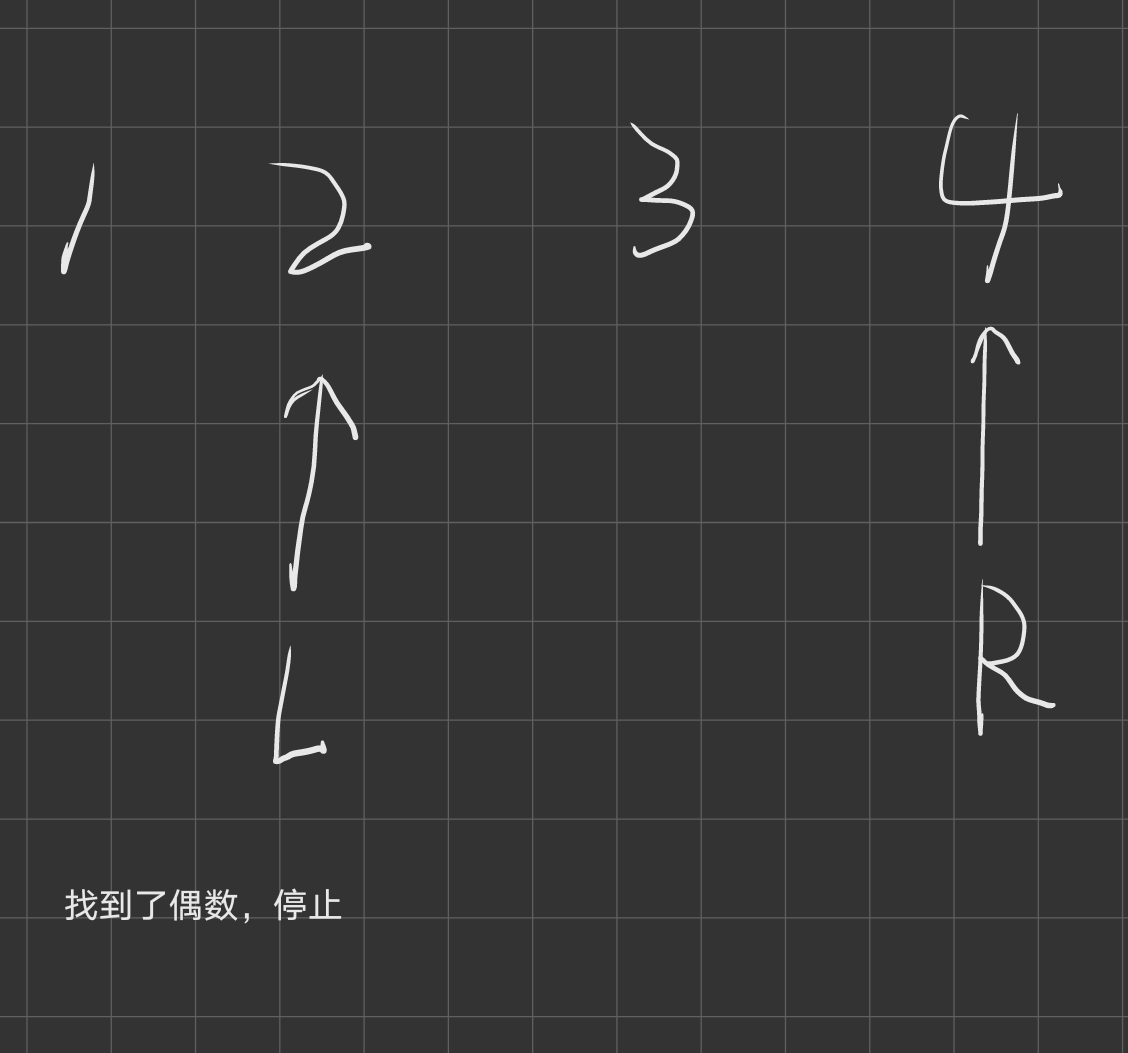 1 2 3 4
L R
找到了偶数，停止